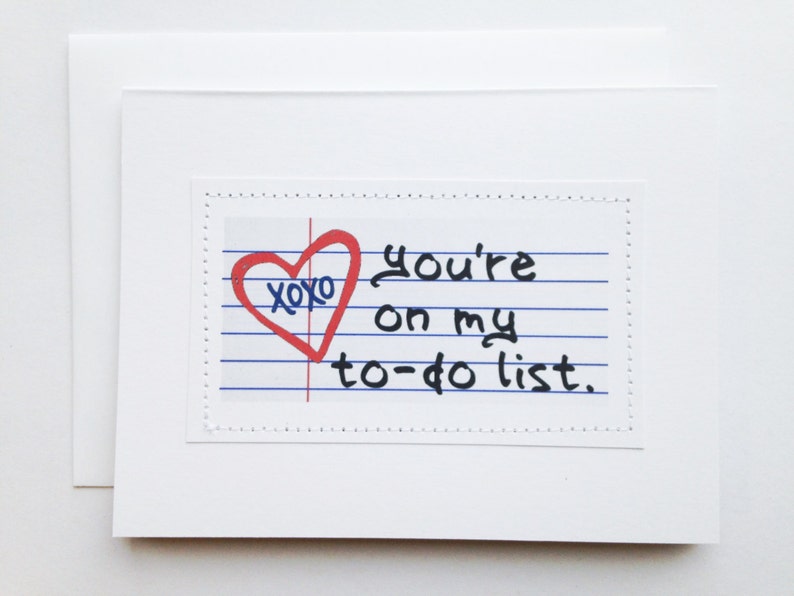 XOXO
you're
on my
to-do list.